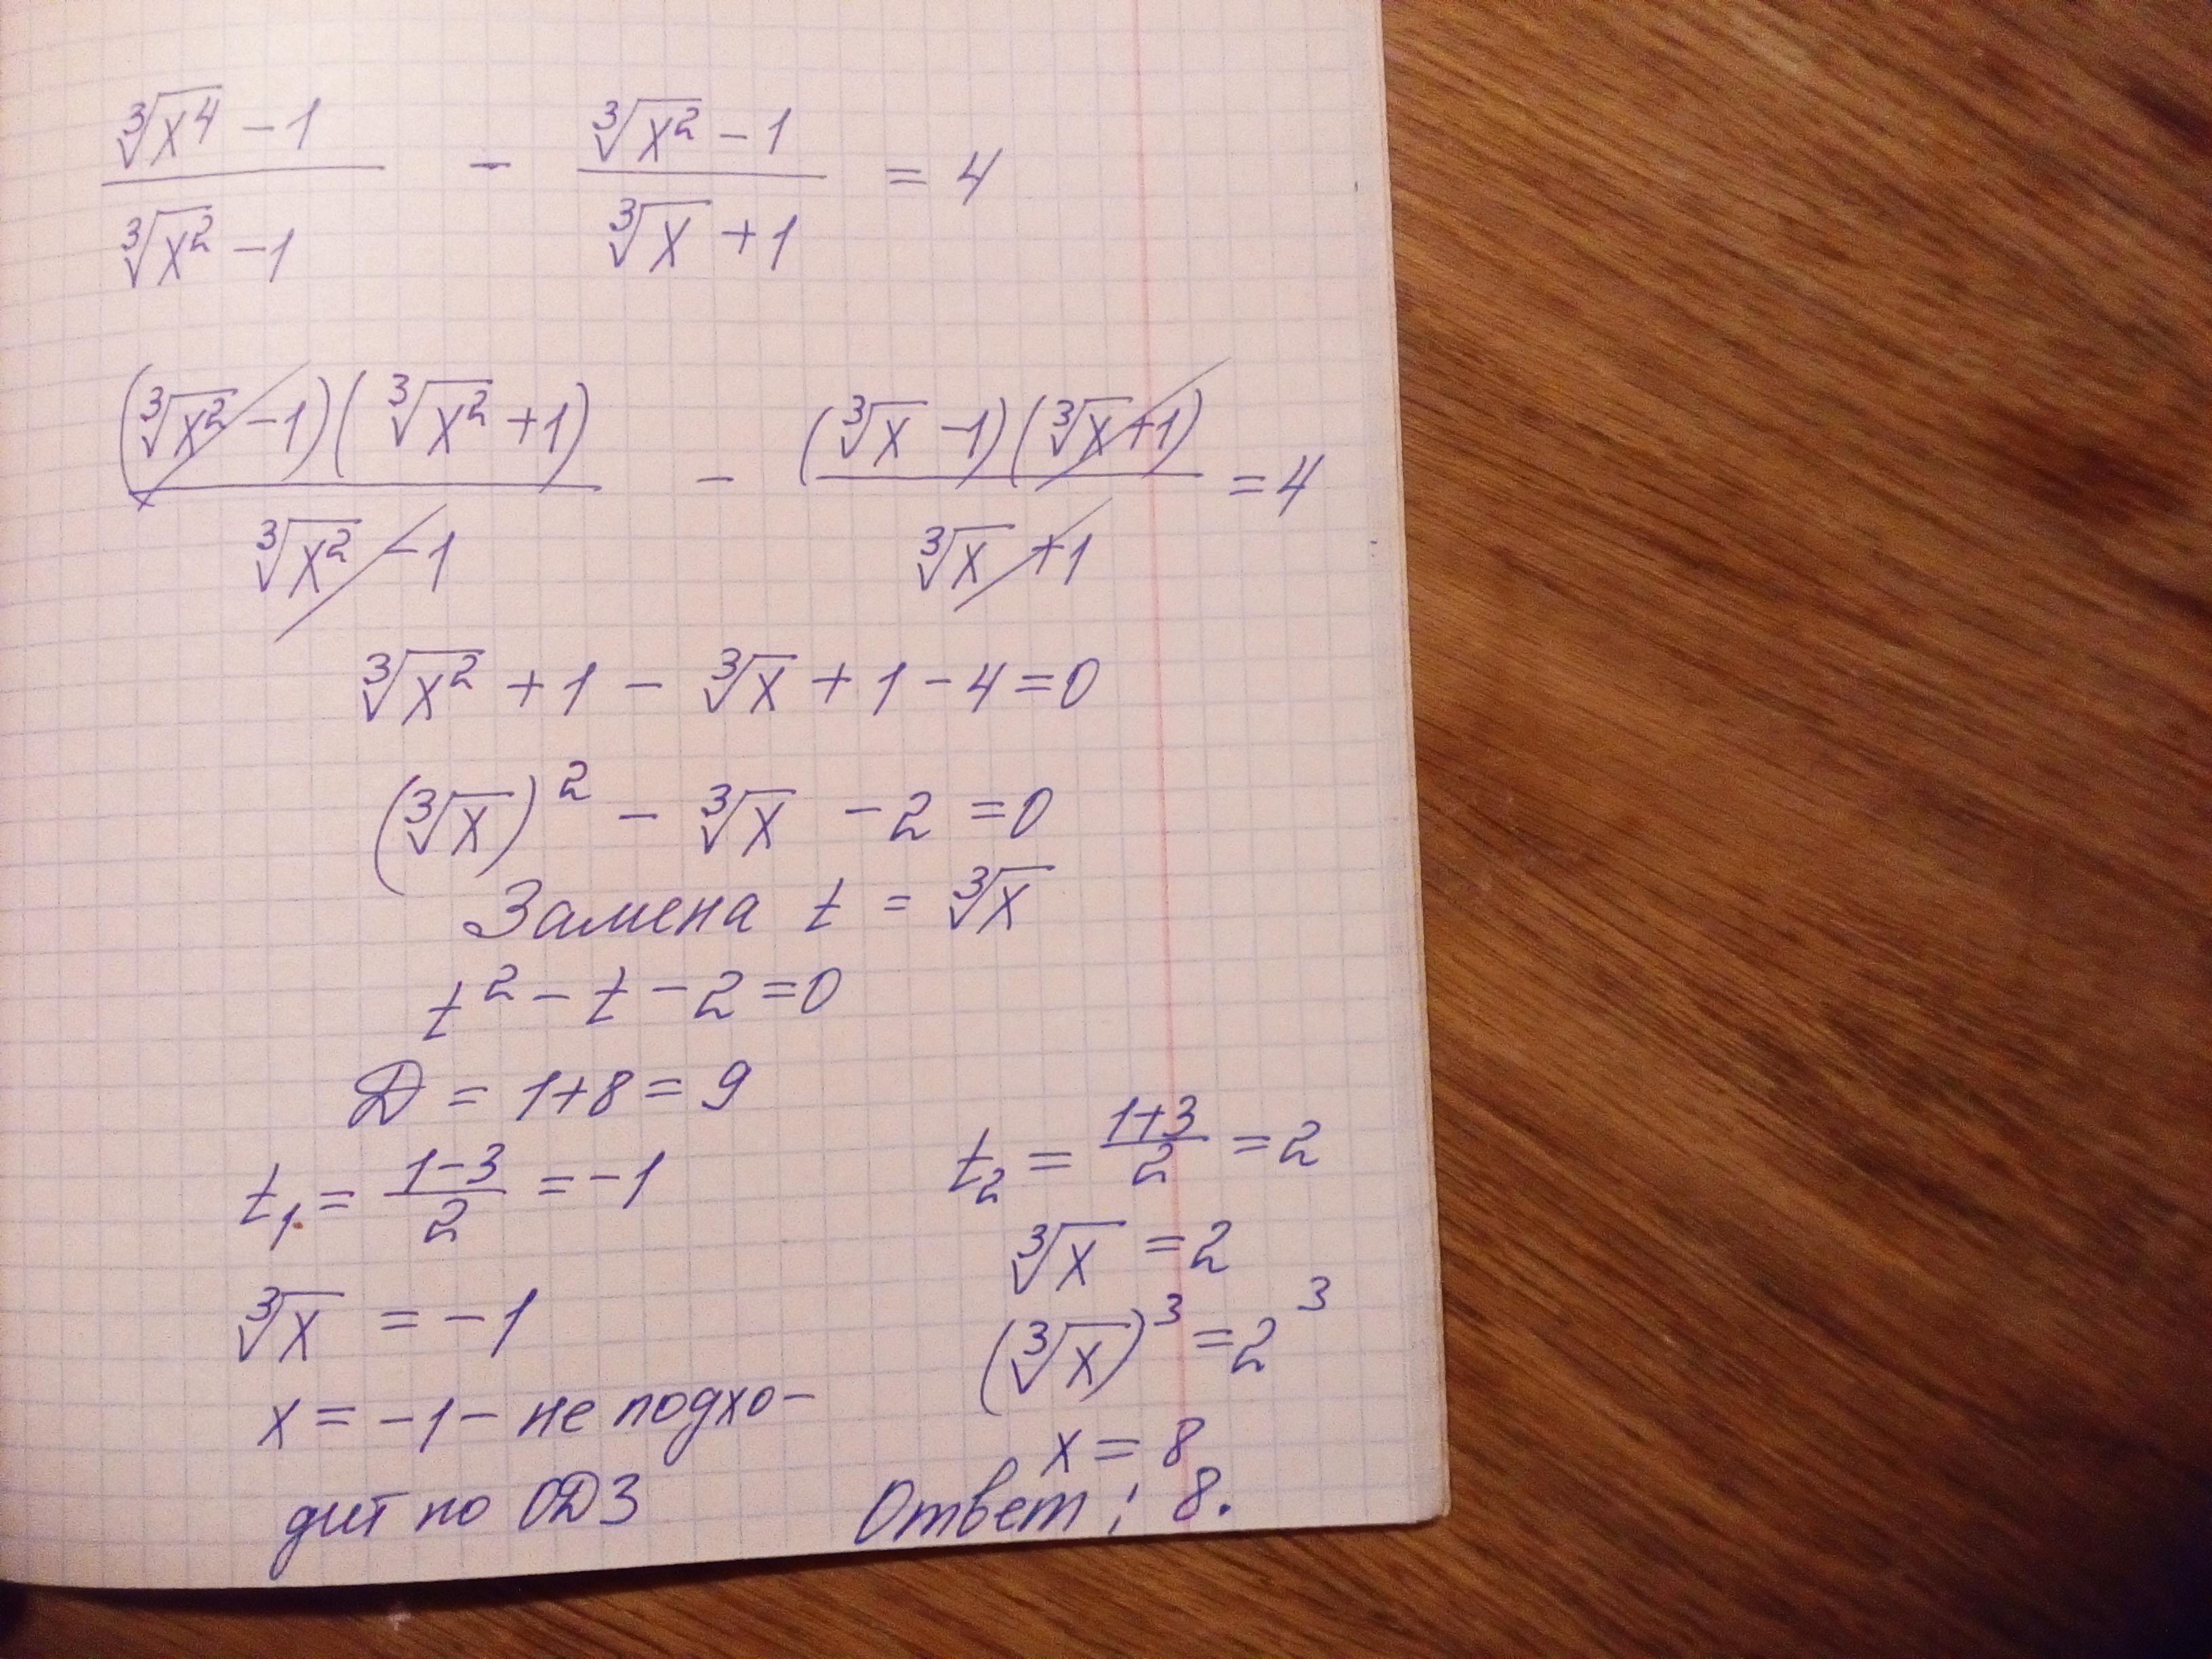 ∛x⁴ − 1 / ∛x² − 1 − ∛x² − 1 / ∛x + 1 = 4
(∛x² − 1)(∛x² + 1) / ∛x² − 1 − (∛x − 1)(∛x + 1) / ∛x + 1 = 4
∛x² + 1 − ∛x + 1 − 4 = 0
(∛x)² − ∛x − 2 = 0
Замена t = ∛x
t² − t − 2 = 0
Д = 1+8 = 9
t₁ = 1−3 / 2 = −1
∛x = −1
x = −1 − не подхо-
дит по ОДЗ
t₂ = 1+3 / 2 = 2
∛x = 2
(∛x)³ = 2³
x = 8
Ответ: 8.